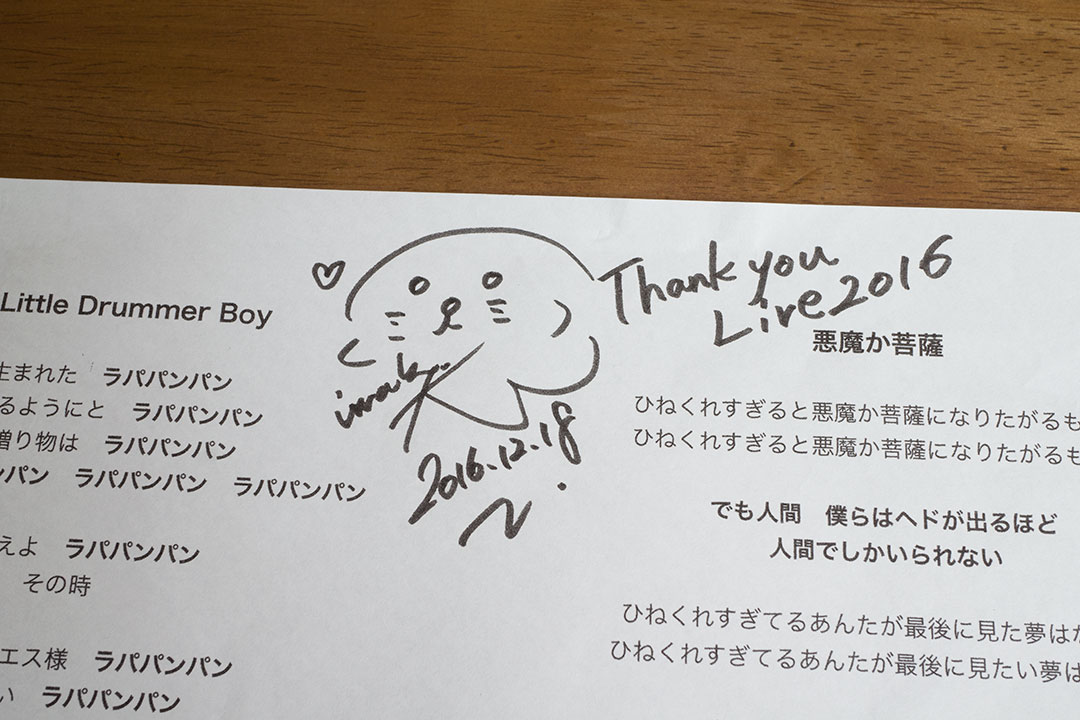 Little Drummer Boy
生まれた　ラパパンパン
るようにと　ラパパンパン
贈り物は　ラパパンパン
ンパン　ラパパンパン　ラパパンパン
えよ　ラパパンパン
その時
エス様　ラパパンパン
い　ラパパンパン
2016.12.18
Thank you
Live 2016
悪魔か菩薩
ひねくれすぎると悪魔か菩薩になりたがるも
ひねくれすぎると悪魔か菩薩になりたがるも
でも人間　僕らはヘドが出るほど
人間でしかいられない
ひねくれすぎてるあんたが最後に見た夢は
ひねくれすぎてるあんたが最後に見たい夢は